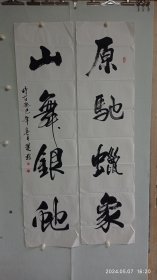 原馳蠟象
山舞銀虵
2024.05.07 16:20